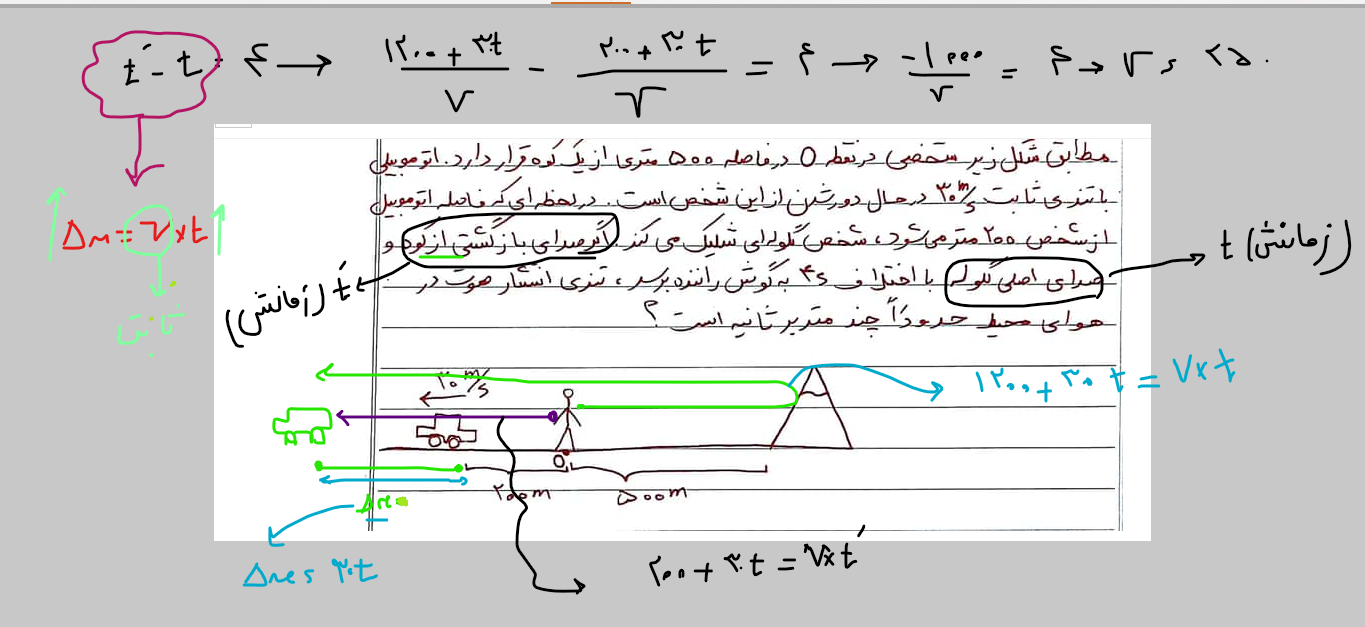 t´ - t = ۴ → ۱۲۰۰ + ۳۰t / V - ۲۰۰ + ۳۰ t / V = ۴ → -۱۰۰۰ / V = ۴ → V = ۲۵۰
مطابق شکل زیر شخصی در نقطه O در فاصله ۵۰۰ متری از یک کوه قرار دارد. اتوموبیلی
با تندی ثابت ۳۰ m/s در حال دور شدن از این شخص است. در لحظه ای که فاصله اتوموبیل
از شخص ۲۰۰ متر می شود، شخص گلوله ای شلیک می کند. اگر صدای بازگشتی از کوه و
صدای اصلی گلوله با اختلاف ۴s به گوش راننده برسد، تندی انتشار صوت در
هوای محیط حدوداً چند متر بر ثانیه است؟
Δx = V×t
ثابت
t (زمانش)
t´ (زمانش)
۳۰ m/s
۱۲۰۰ + ۳۰ t = V× t
O
۲۰۰m
۵۰۰m
Δx =
Δx = ۳۰t
۲۰۰ + ۳۰t = V× t´